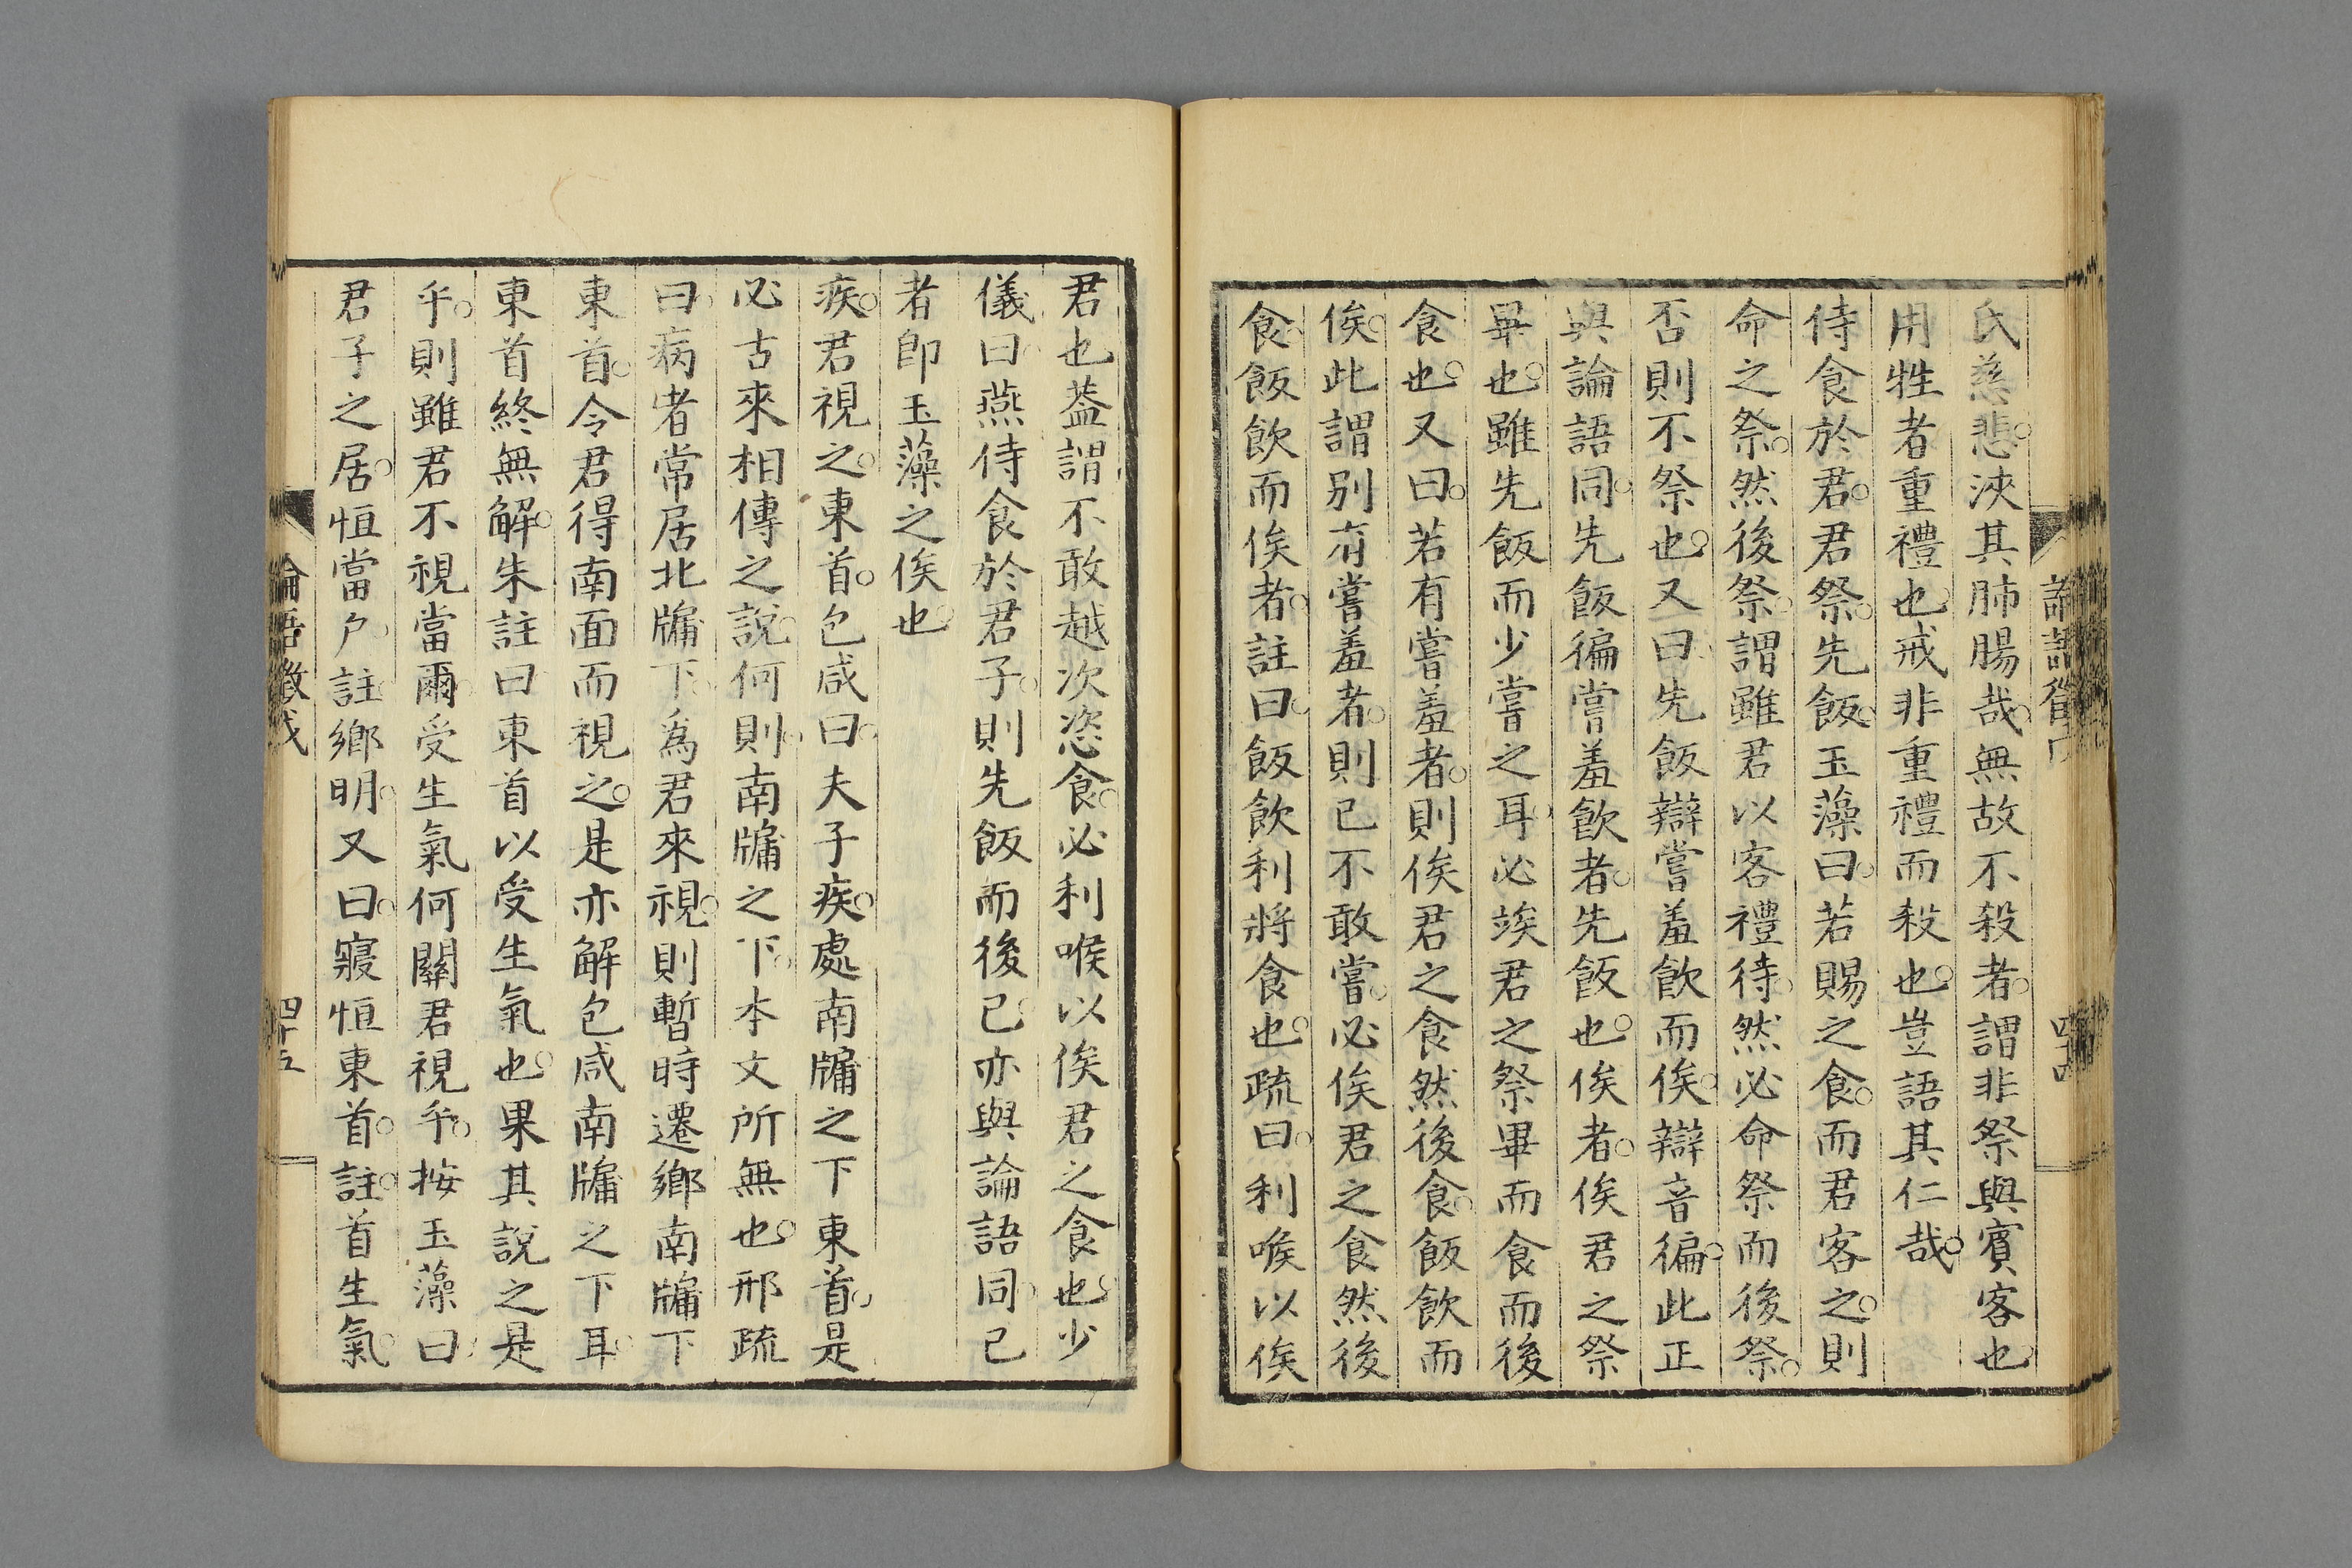 氏慈悲浹其肺腸哉無故不殺者謂非祭與賓客也
用牲者重禮也戒非重禮而殺也豈語其仁哉
侍食於君君祭先飯玉藻曰若賜之食而君客之則
命之祭然後祭謂雖君以客禮待然必命祭而後祭
否則不祭也又曰先飯辯嘗羞飲而俟辯音徧此正
與論語同先飯徧嘗羞飲者先飯也俟者俟君之祭
畢也雖先飯而少嘗之耳必竢君之祭畢而食而後
食也又曰若有嘗羞者則俟君之食然後食飯飲而
俟此謂別有嘗羞者則已不敢嘗必俟君之食然後
食飯飲而俟者註曰飯飲利將食也疏曰利喉以俟
君也葢謂不敢越次恣食必利喉以俟君之食也少
儀曰燕侍食於君子則先飯而後已亦與論語同已
者卽玉藻之俟也
疾君視之東首包咸曰夫子疾處南牖之下東首是
必古來相傳之說何則南牖之下本文所無也邢疏
曰病者常居北牖下爲君來視則暫時遷鄉南牖下
東首令君得南面而視之是亦解包咸南牖之下耳
東首終無解朱註曰東首以受生氣也果其說之是
乎則雖君不視當爾受生氣何關君視乎按玉藻曰
君子之居恒當戶註鄉明又曰寢恒東首註首生氣
論語徵戊
四十五